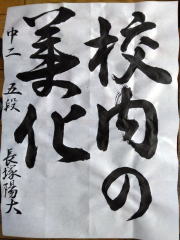 校内の
美化
中二 五段 長塚陽大